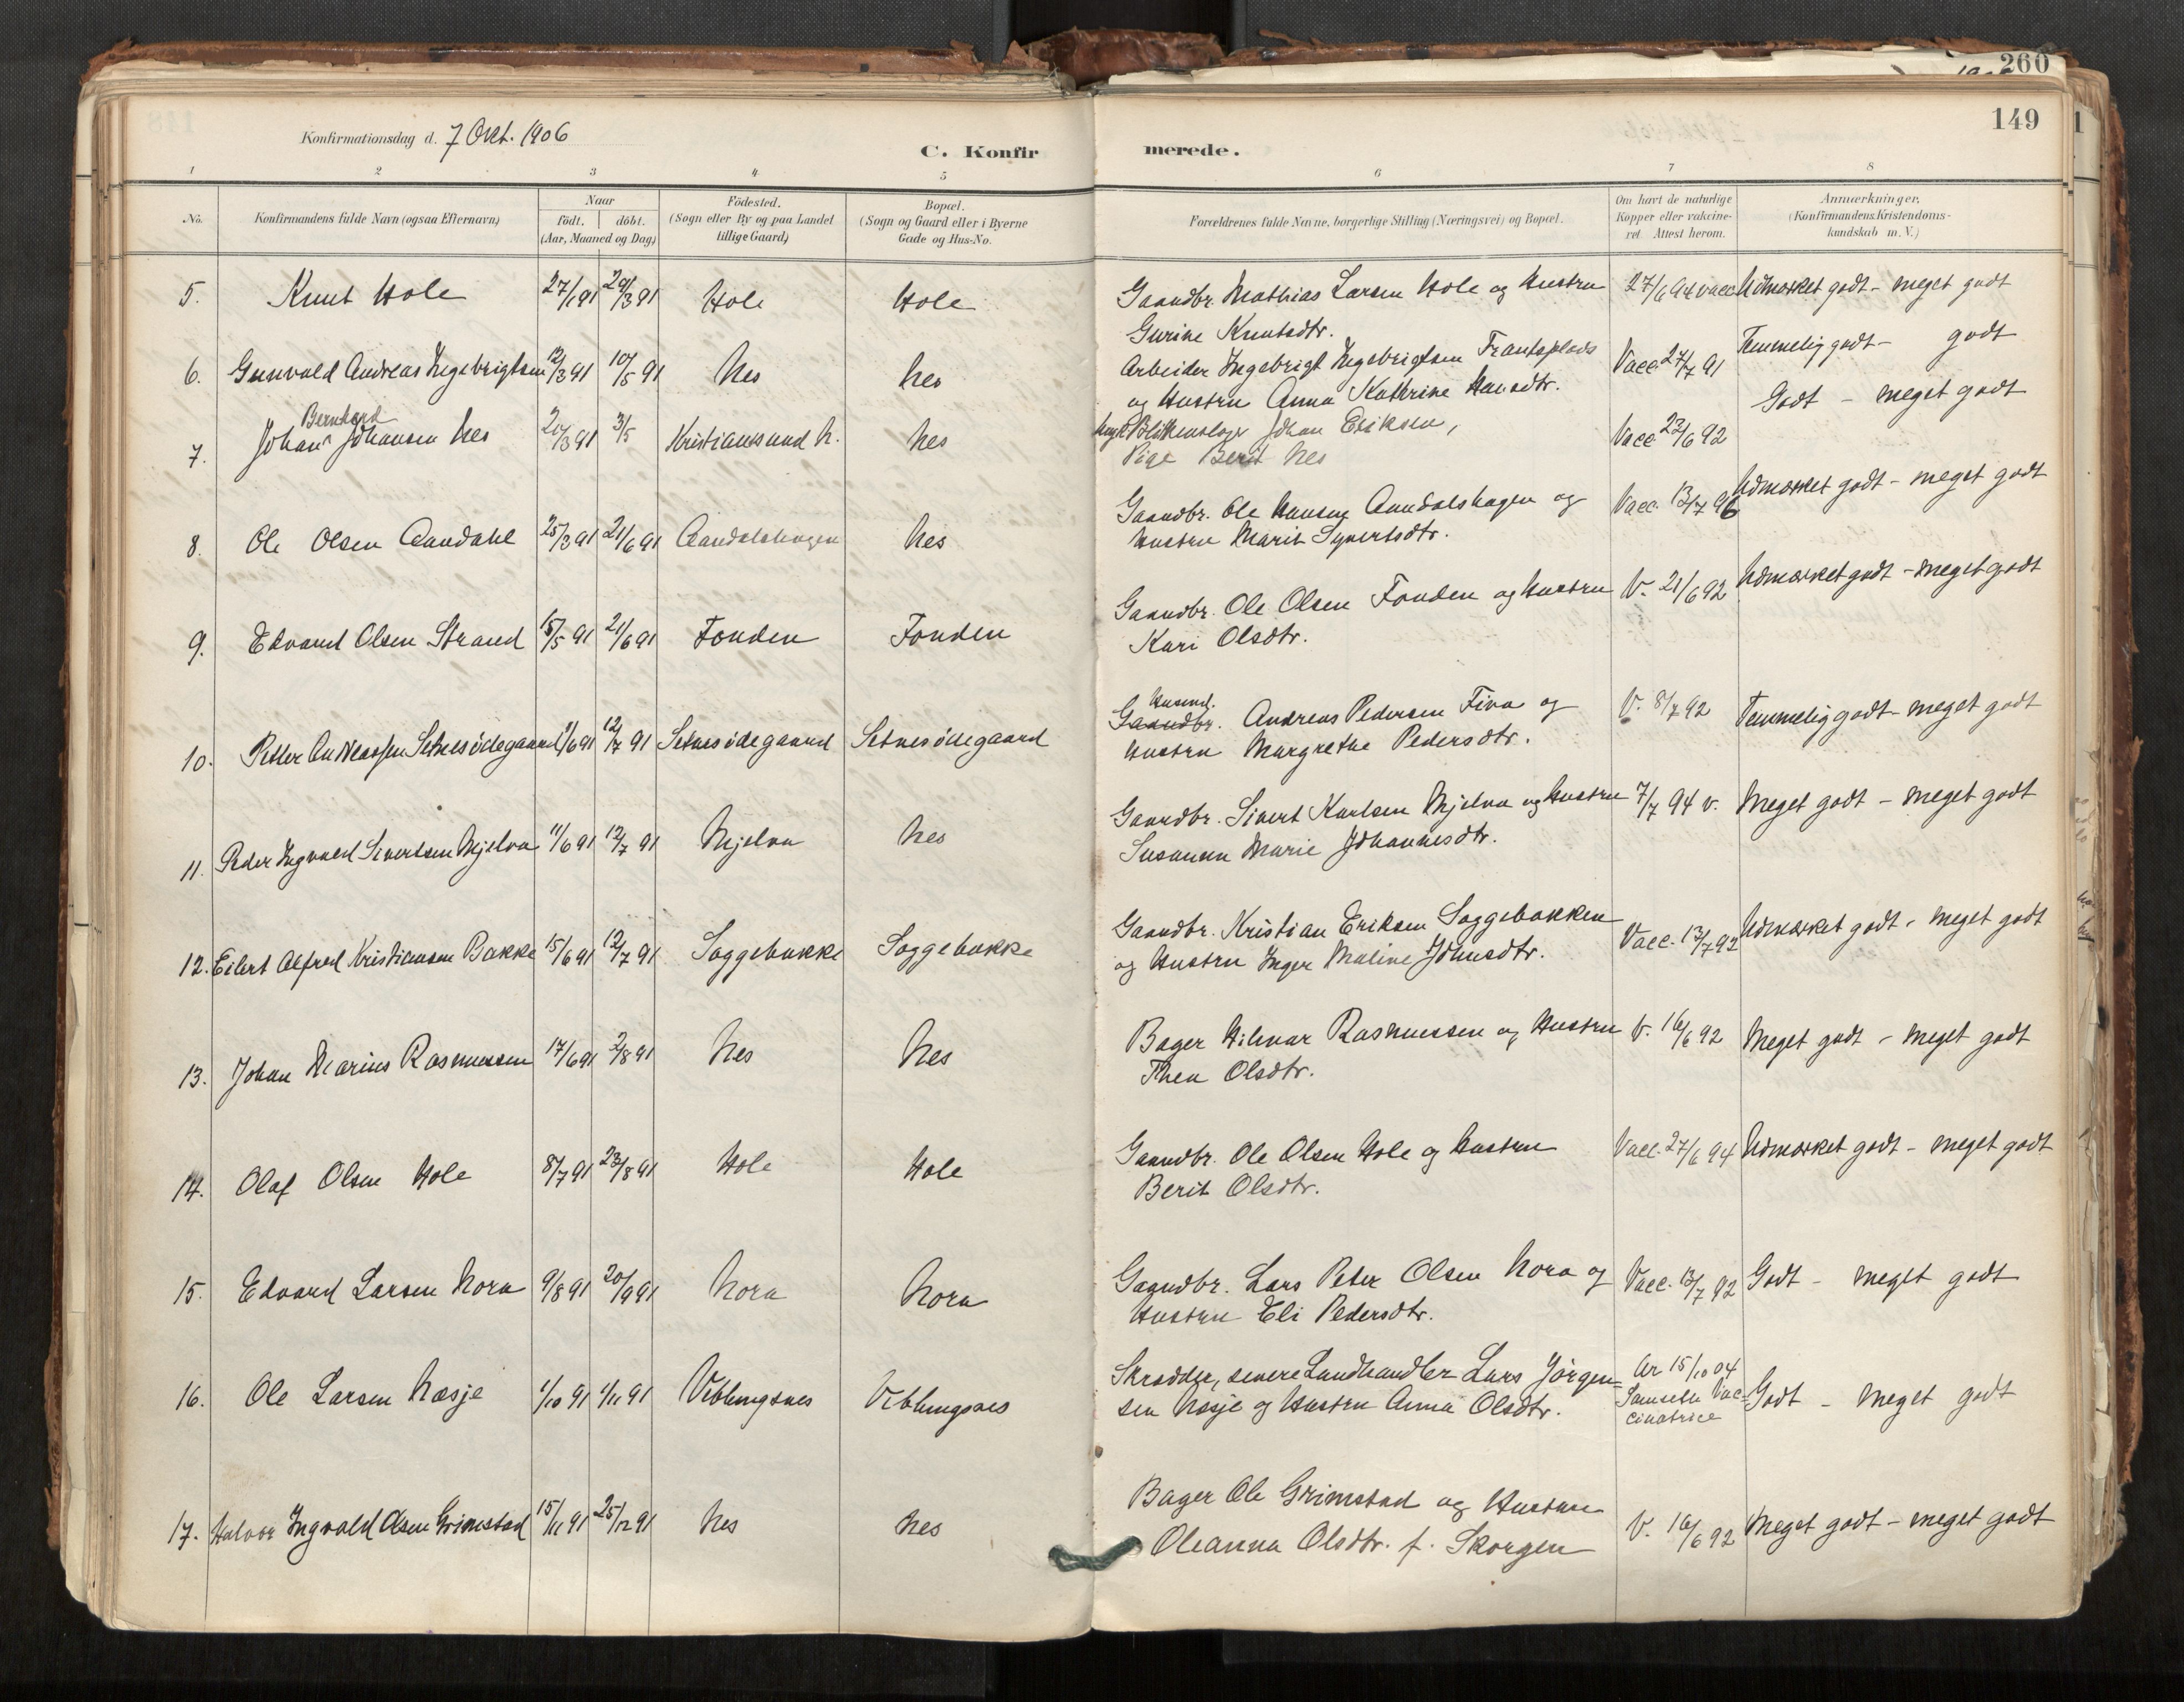 260
149
Konfirmationsdag d. 7 Okt. 1906
C. Konfirmerede.
1 2 3 4 5 6 7 8
No.
Konfirmandens fulde Navn (ogsaa Efternavn)
Naar
födt. döbt.
(Aar, Maaned og Dag)
Födested.
(Sogn eller By og paa Landet
tillige Gaard)
Bopæl.
(Sogn og Gaard eller i Byerne
Gade og Hus-No.
Forældrenes fulde Navne, borgerlige Stilling (Næringsvei) og Bopæl.
Om havt de naturlige
Kopper eller vakcine-
ret Attest herom.
Anmærkninger.
(Konfirmandens Kristendoms-
kundskab m. V.)
5. Knut Hole 27/1 91 29/3 91 Hole Hole Gaardbr. Mathias Larsen Hole og Hustru 27/6 94 vacc Udmærket godt - meget godt
Gurine Knutsdtr.
6. Gunvald Andreas Ingebrigtsen 12/3 91 10/5 91 Nes Nes Arbeider Ingebrigt Ingebrigtsen Frantsplads Vacc 27/7 91 Temmelig godt - godt
og Hustru Anna Kathrine Hansdtr.
7. Johan Bernhard Johansen Nes 20/3 91 3/5 Kristianssund N. Nes Blikkenslager Johan Eriksen, Vacc 23/6 92 Godt - meget godt
Pige Berit Nes
8. Ole Olsen Aandahl 25/3 91 21/6 91 Aandalshagen Nes Gaardbr. Ole Hansen Aandalshagen og Vacc. 13/7 96 Udmærket godt - meget godt
Hustru Marit Syvertsdtr.
9. Edvard Olsen Strand 15/5 91 21/6 91 Fonden Fonden Gaardbr. Ole Olsen Fonden og Hustru V. 21/6 92 Udmærket godt - meget godt
Kari Olsdtr.
10. Petter Andreassen Setnesödegaard 1/6 91 12/7 91 Setnesödegaard Setnesödegaard Gaardbr. Husmd. Andreas Pedersen Fiva og V. 8/7 92 Temmelig godt - meget godt
Hustru Margrethe Pedersdtr.
11. Peder Ingvald Sivertsen Mjelva 11/6 91 12/7 91 Mjelva Nes Gaardbr. Sivert Karlsen Mjelva og Hustru 7/7 94 v. Meget godt - meget godt
Susanna Marie Johannesdtr.
12. Eilert Alfred Kristiansen Bakke 15/6 91 12/7 91 Soggebakke Soggebakke Gaardbr. Kristian Eriksen Soggebakken Vacc. 13/7 92 Udmærket godt - meget godt
og Hustru Inger Maline Johnsdtr.
13. Johan Marius Rasmussen 17/6 91 2/8 91 Nes Nes Bager Hilmar Rasmussen og Hustru V. 16/6 92 Meget godt - meget godt
Thea Olsdtr.
14. Olaf Olsen Hole 8/7 91 23/8 91 Hole Hole Gaardbr. Ole Olsen Hole og Hustru Vacc. 27/6 94 Udmærket godt - meget godt
Berit Olsdtr.
15. Edvard Larsen Nora 9/8 91 20/9 91 Nora Nora Gaardbr. Lars Peter Olsen Nora og Vacc. 13/7 92 Godt - meget godt
Hustru Eli Pedersdtr.
16. Ole Larsen Næsje 1/10 91 1/11 91 Veblungsnes Veblungsnes Skrædder, senere Landhandler Lars Jörgen- Ar 15/10 04 Godt - meget godt
sen Næsje og Hustru Anna Olsdtr. Vac-
cinatrice
17. Halvor Ingvald Olsen Grimstad 15/11 91 25/12 91 Nes Nes Bager Ole Grimstad og Hustru V. 16/6 92 Meget godt - meget godt
Oleanna Olsdtr. f. Skorgen